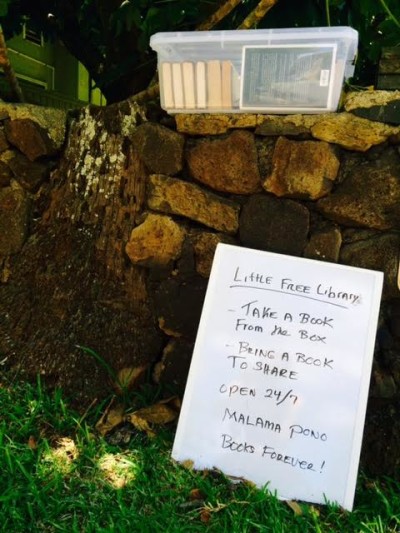 Little Free Library
- Take a Book
From the Box
- Bring a Book
To Share
Open 24/7
Malama Pono
Books Forever!